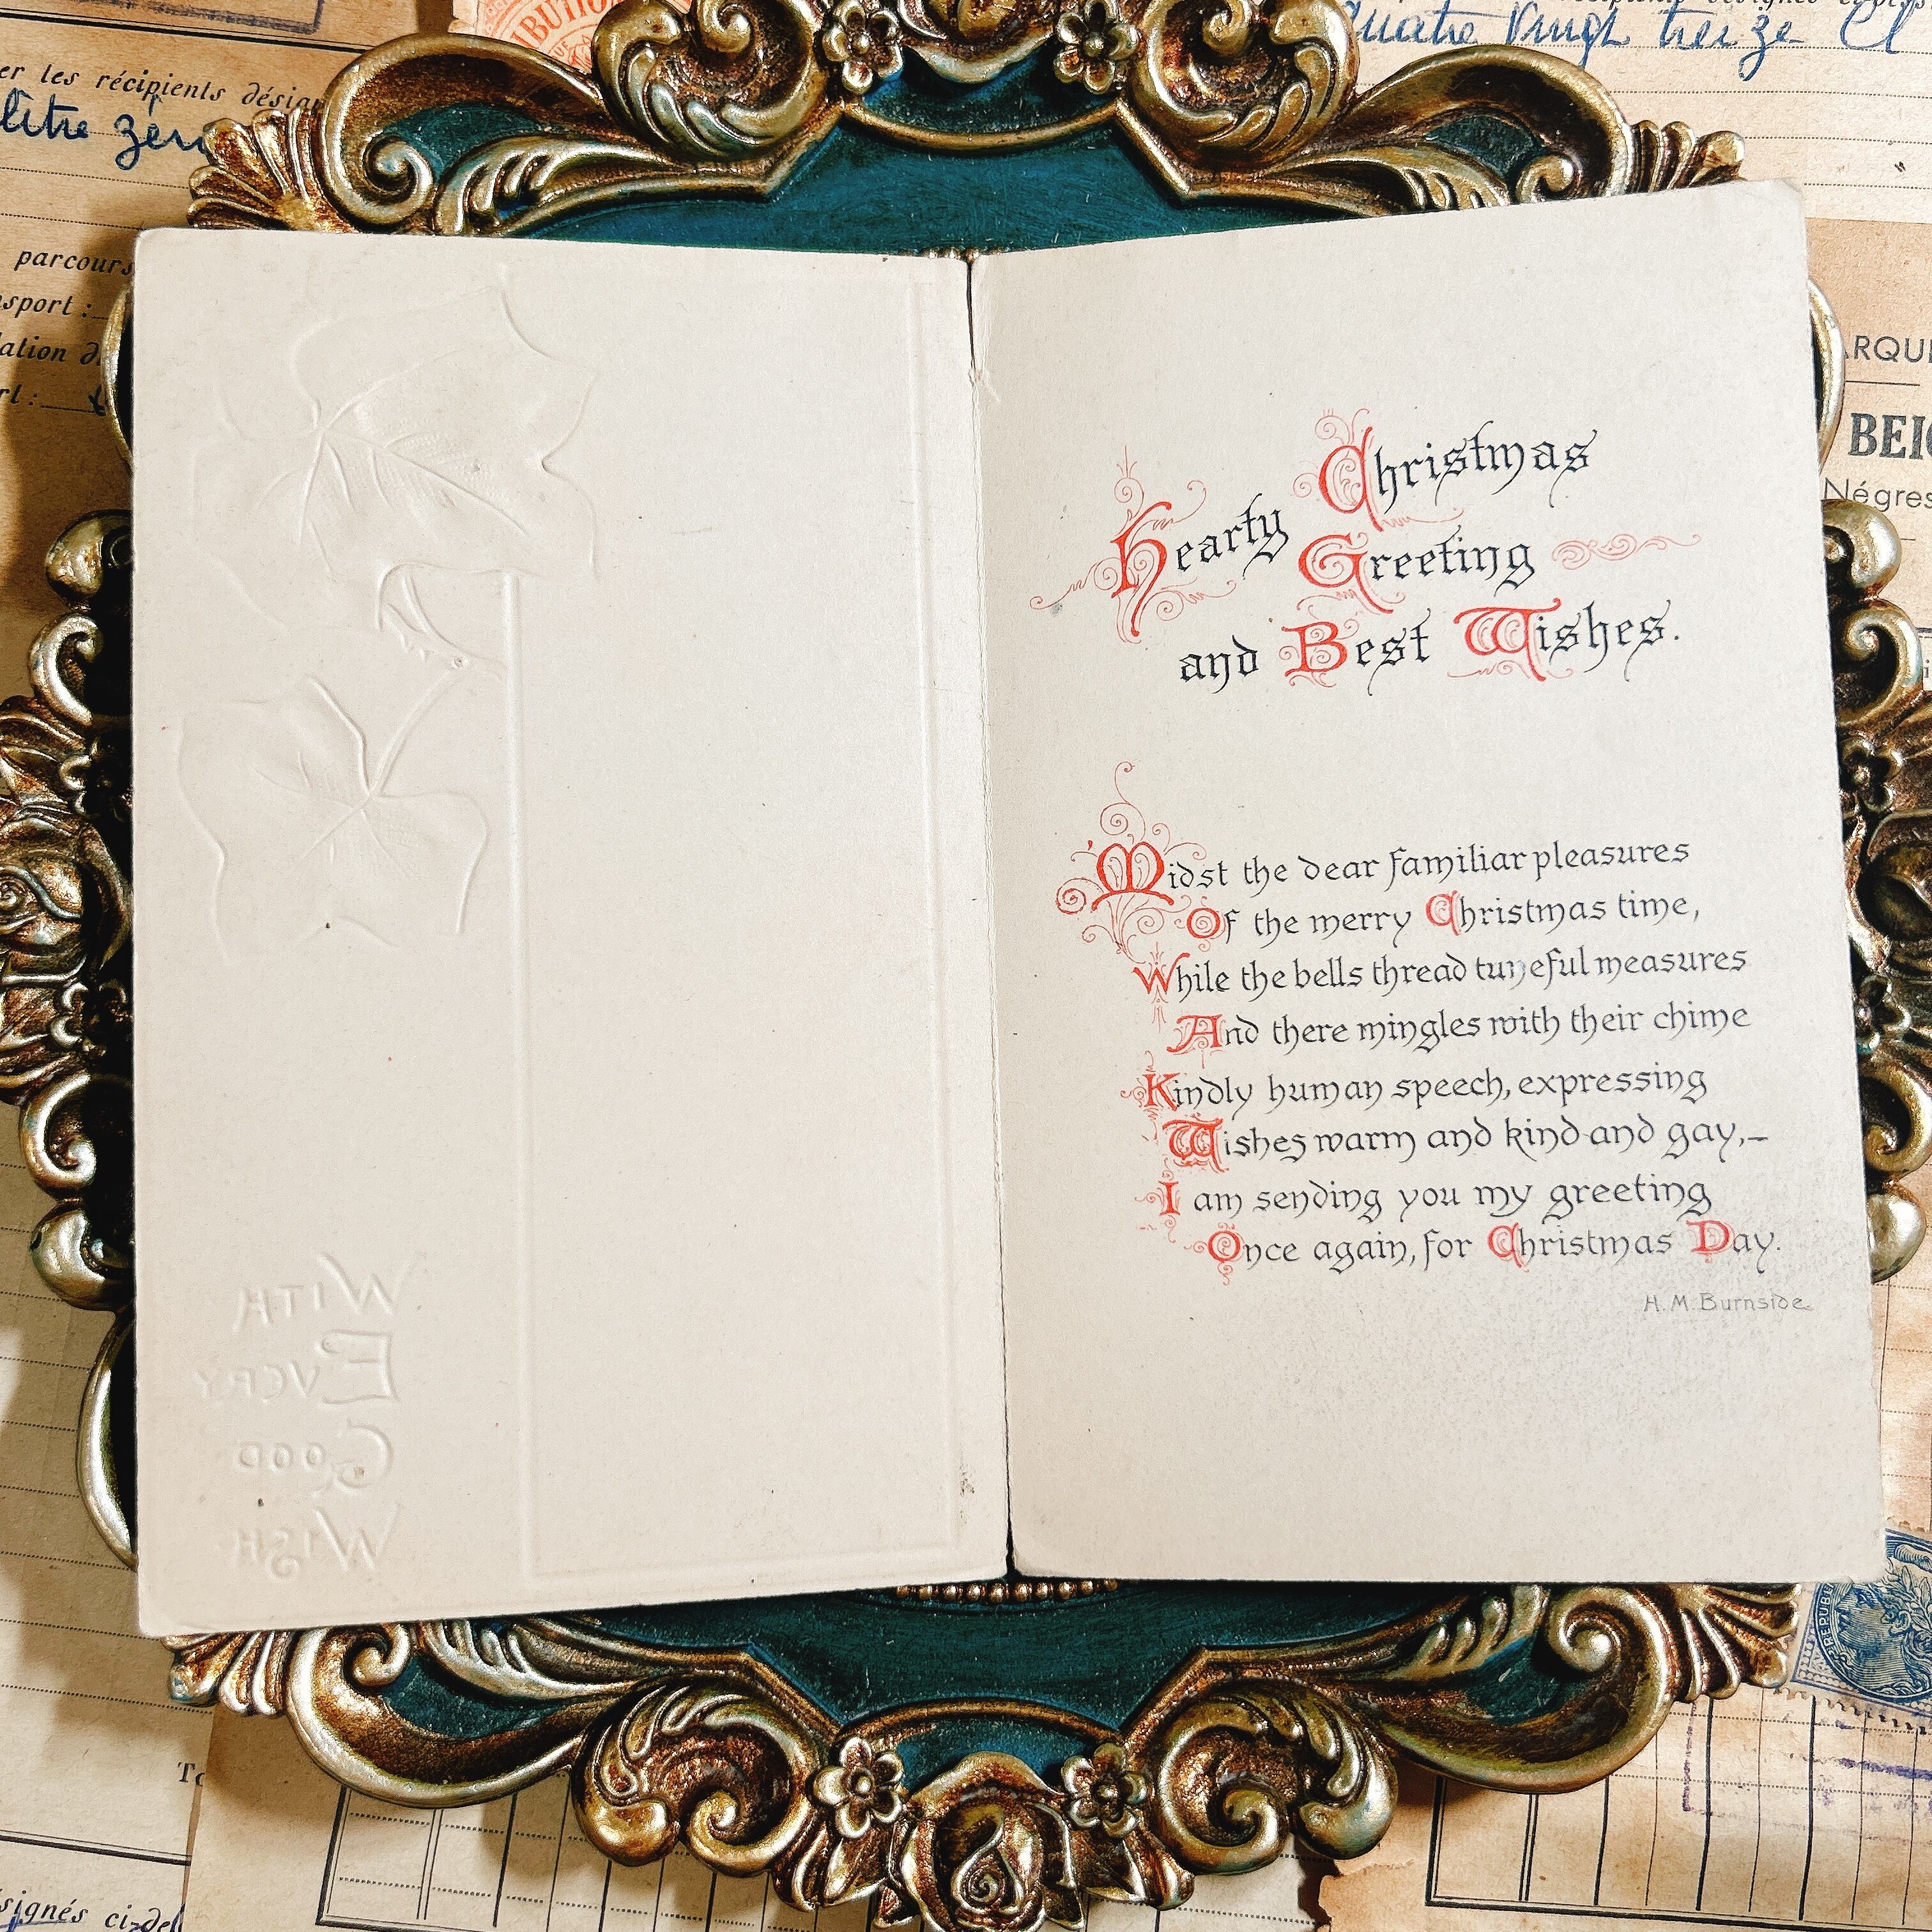 IBUTION
quatre vingt treize et
er les récipients désign
litre zéro
parcours
nsport :
ation d
rt :
ARQUE
BEI
Négres
Christmas
Hearty Greeting
and Best Wishes.
Midst the dear familiar pleasures
Of the merry Christmas time,
While the bells thread tuneful measures
And there mingles with their chime
Kindly human speech, expressing
Wishes warm and kind and gay,—
I am sending you my greeting
Once again, for Christmas Day.
H. M. Burnside.
WITH
EVERY
GOOD
WISH
REPUB
signés ci-de